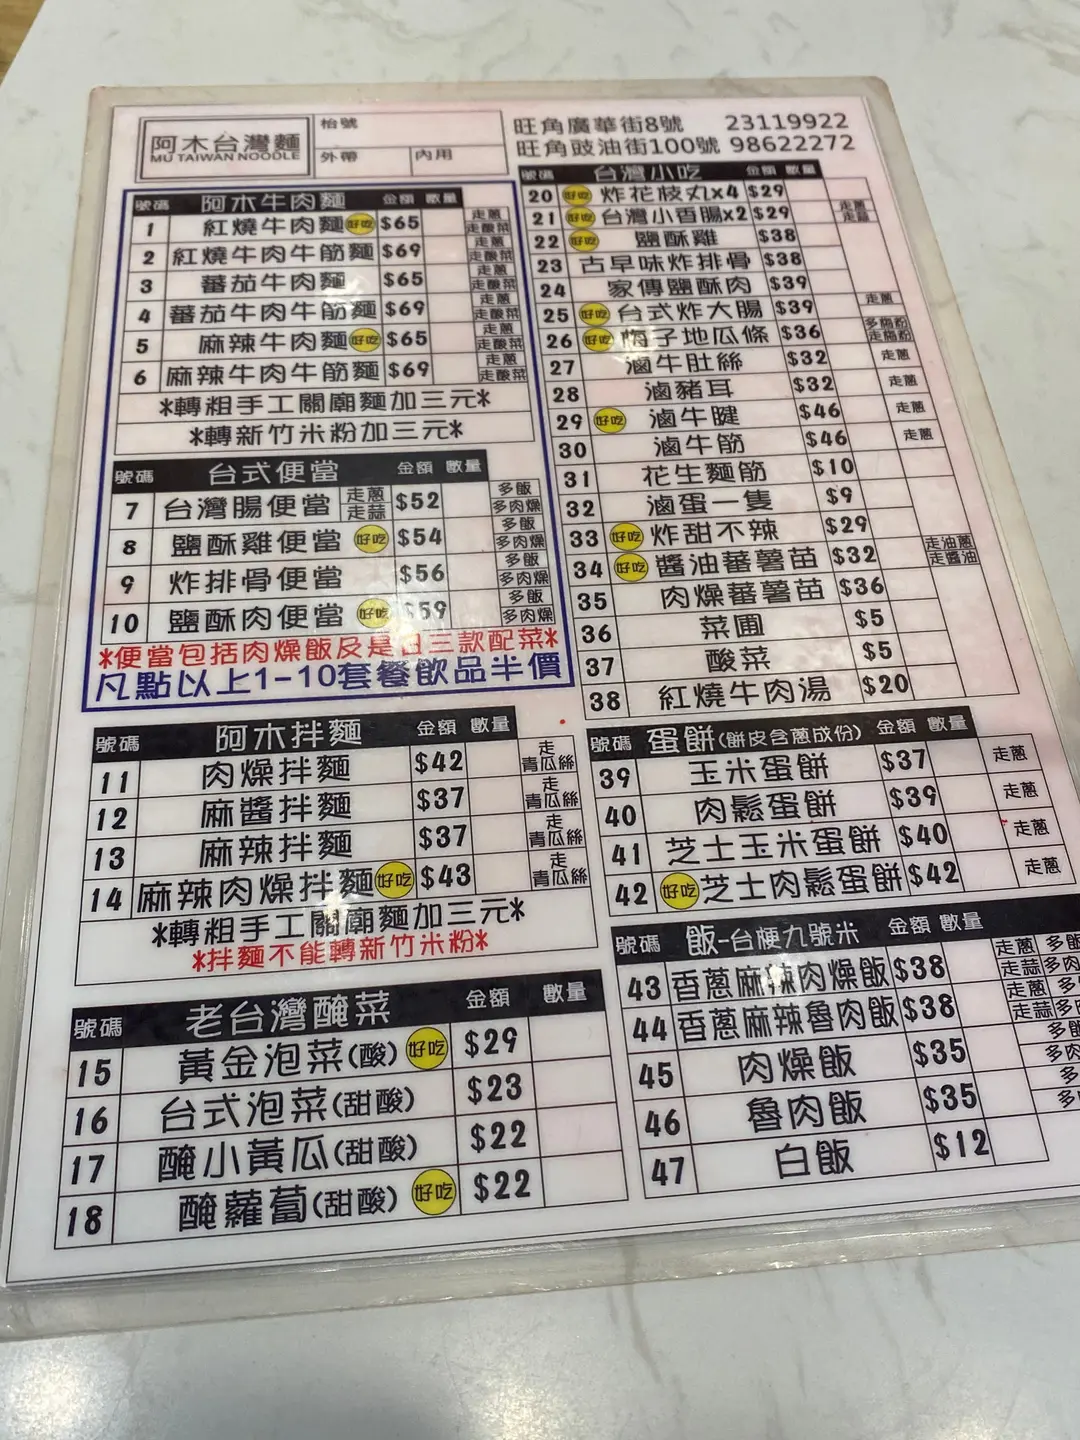 阿木台灣麵
MU TAIWAN NOODLE
枱號
外帶 內用
旺角廣華街8號 23119922
旺角豉油街100號 98622272
號碼 阿木牛肉麵 金額 數量
1 紅燒牛肉麵 好吃 $65 走蔥 走酸菜
2 紅燒牛肉牛筋麵 $69 走蔥 走酸菜
3 蕃茄牛肉麵 $65 走蔥 走酸菜
4 蕃茄牛肉牛筋麵 $69 走蔥 走酸菜
5 麻辣牛肉麵 好吃 $65 走蔥 走酸菜
6 麻辣牛肉牛筋麵 $69 走蔥 走酸菜
*轉粗手工關廟麵加三元*
*轉新竹米粉加三元*
號碼 台式便當 金額 數量
7 台灣腸便當 走蔥 走蒜 $52 多飯 多肉燥
8 鹽酥雞便當 好吃 $54 多飯 多肉燥
9 炸排骨便當 $56 多飯 多肉燥
10 鹽酥肉便當 好吃 $59 多飯 多肉燥
*便當包括肉燥飯及是日三款配菜*
凡點以上1-10套餐飲品半價
號碼 阿木拌麵 金額 數量
11 肉燥拌麵 $42 走青瓜絲
12 麻醬拌麵 $37 走青瓜絲
13 麻辣拌麵 $37 走青瓜絲
14 麻辣肉燥拌麵 好吃 $43 走青瓜絲
*轉粗手工關廟麵加三元*
*拌麵不能轉新竹米粉*
號碼 老台灣醃菜 金額 數量
15 黃金泡菜(酸) 好吃 $29
16 台式泡菜(甜酸) $23
17 醃小黃瓜(甜酸) $22
18 醃蘿蔔(甜酸) 好吃 $22
號碼 台灣小吃 金額 數量
20 好吃 炸花枝丸x4 $29
21 好吃 台灣小香腸x2 $29 走蔥 走蒜
22 好吃 鹽酥雞 $38
23 古早味炸排骨 $38
24 家傳鹽酥肉 $39
25 好吃 台式炸大腸 $39 走蔥
26 好吃 梅子地瓜條 $36 多梅粉 走梅粉
27 滷牛肚絲 $32 走蔥
28 滷豬耳 $32 走蔥
29 好吃 滷牛腱 $46 走蔥
30 滷牛筋 $46 走蔥
31 花生麵筋 $10
32 滷蛋一隻 $9
33 好吃 炸甜不辣 $29
34 好吃 醬油蕃薯苗 $32 走油蔥 走醬油
35 肉燥蕃薯苗 $36
36 菜圃 $5
37 酸菜 $5
38 紅燒牛肉湯 $20
號碼 蛋餅(餅皮含蔥成份) 金額 數量
39 玉米蛋餅 $37 走蔥
40 肉鬆蛋餅 $39 走蔥
41 芝士玉米蛋餅 $40 走蔥
42 好吃 芝士肉鬆蛋餅 $42 走蔥
號碼 飯-台梗九號米 金額 數量
43 香蔥麻辣肉燥飯 $38 走蔥 走蒜 多飯 多肉
44 香蔥麻辣魯肉飯 $38 走蔥 走蒜 多
45 肉燥飯 $35 多飯 多肉
46 魯肉飯 $35 多 多
47 白飯 $12